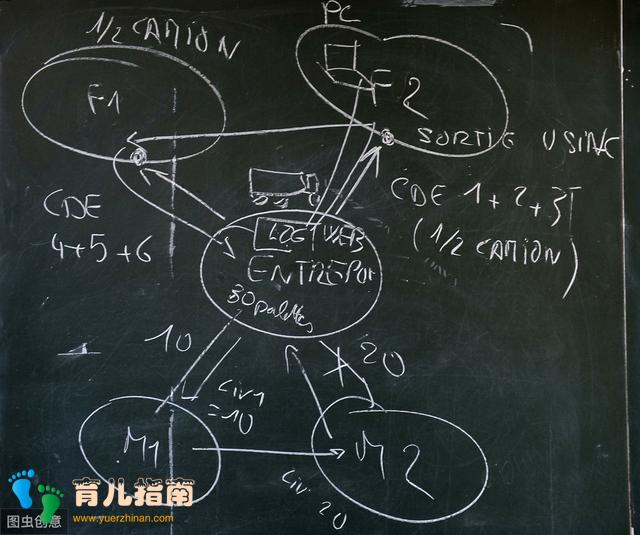 1/2 CAMION
PC
F1
F2
SORTIE USINE
CDE
4+5+6
CDE 1+2+3
(1/2 CAMION)
WEB
ENTREPOT
30 palettes
10
20
Liv 1
=10
M1
M2
Liv. 20
育儿指南
www.yuerzhinan.com
图虫创意